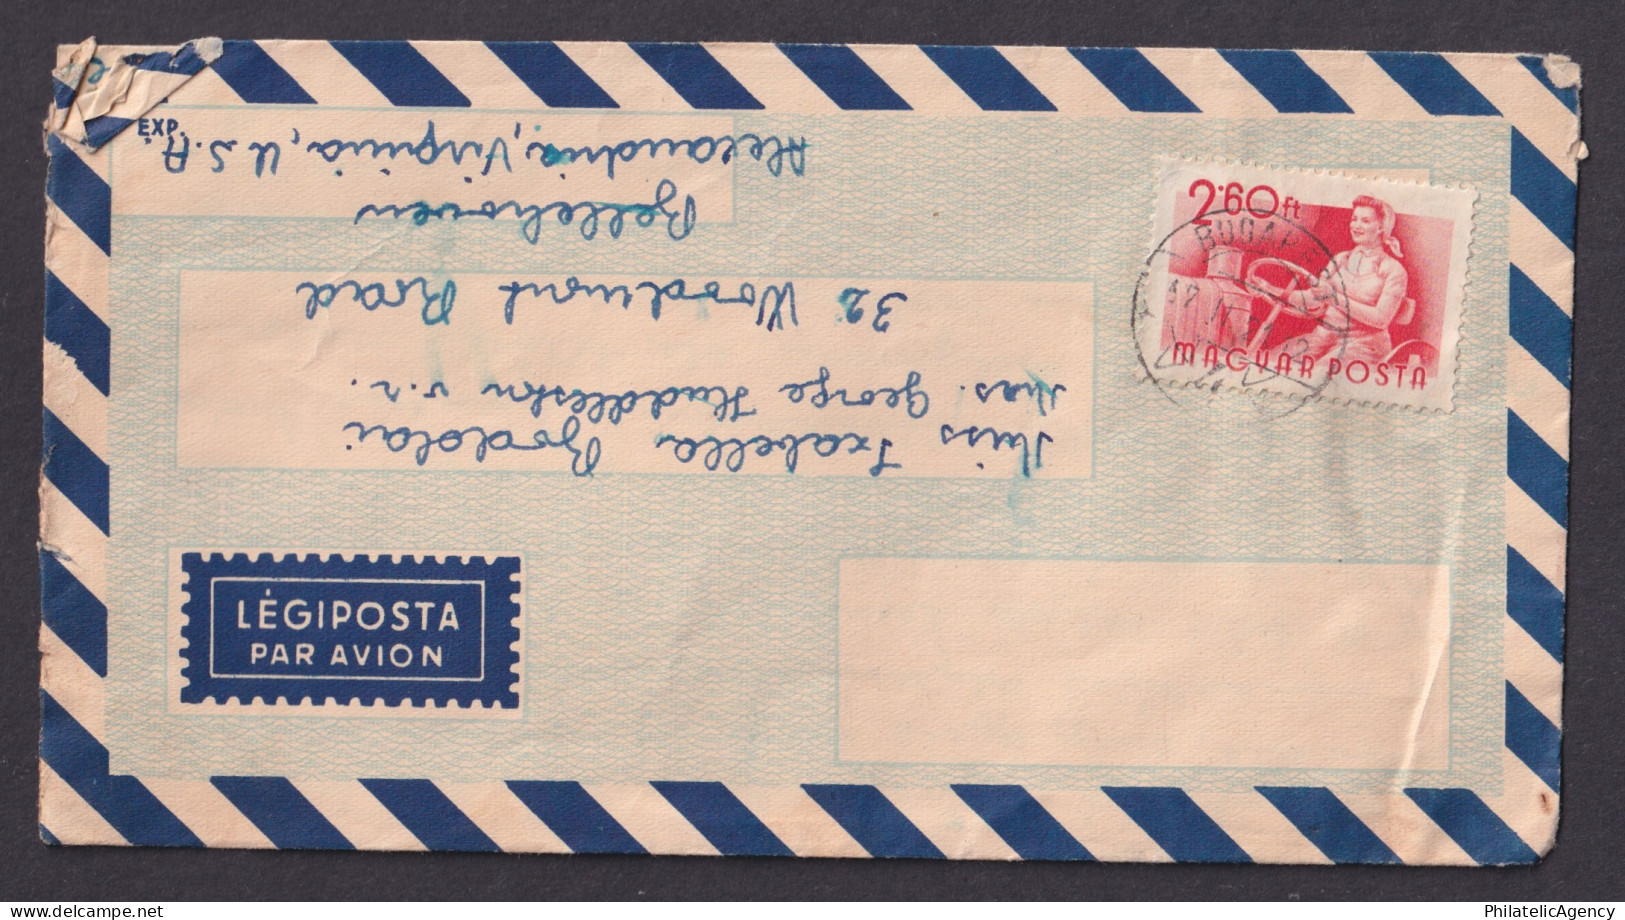 EXP.
2·60 ft
BUDAPEST
MAGYAR POSTA
Miss Izabella Bodolai
Mrs. George Huddleston v.r.
32 Woodmont Road
Bellehaven
Alexandria, Virginia, U.S.A.
LÉGIPOSTA
PAR AVION
PhilatelicAgency
delcampe.net